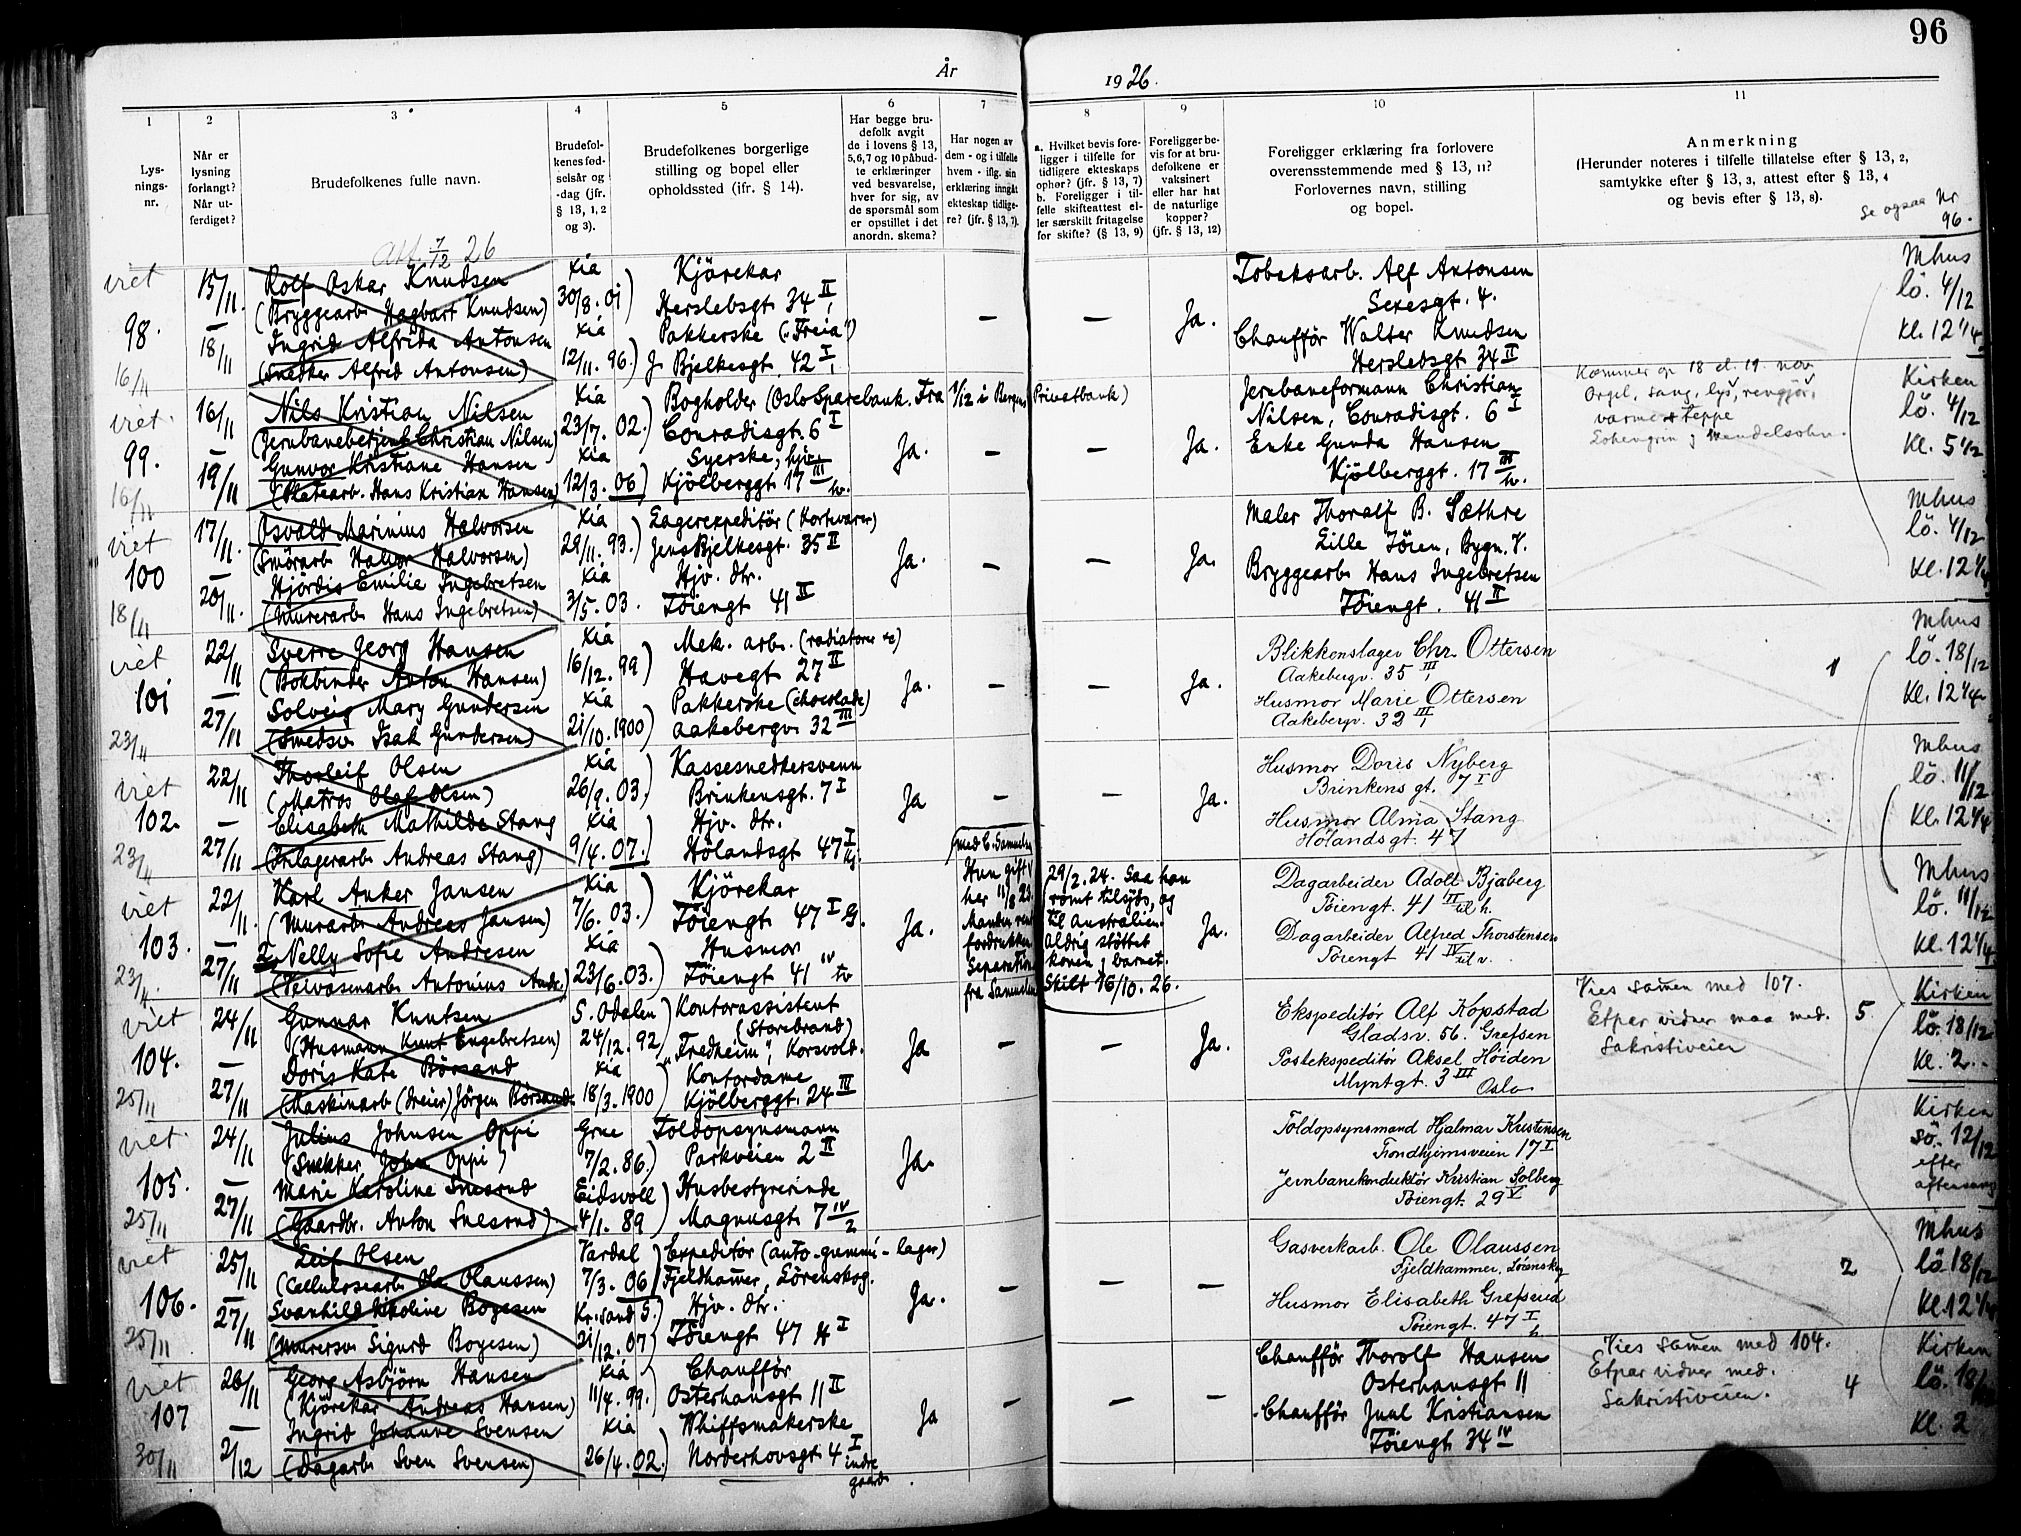 96
År 1926.
1
2
3
4
5
6
7
8
9
10
11
Lys-
nings-
nr.
Når er
lysning
forlangt?
Når ut-
ferdiget?
Brudefolkenes fulle navn.
Brudefol-
kenes fød-
selsår og
-dag (jfr.
§ 13, 1, 2
og 3).
Brudefolkenes borgerlige
stilling og bopel eller
opholdssted (jfr. § 14).
Har begge bru-
defolk avgit
de i lovens § 13,
5,6,7 og 10 påbud-
te erklæringer
ved besvarelse,
hver for sig, av
de spørsmål som
er opstillet i det
anordn. skema?
Har nogen av
dem - og i tilfelle
hvem - iflg. sin
erklæring inngått
ekteskap tidlige-
re? (jfr. § 13, 7).
a. Hvilket bevis fore-
ligger i tilfelle for
tidligere ekteskaps
ophør? (jfr. § 13, 7)
b. Foreligger i til-
felle skifteattest el-
ler særskilt fritagelse
for skifte? (§ 13, 9)
Foreligger be-
vis for at bru-
defolkene er
vaksinert
eller har hat
de naturlige
kopper?
(jfr. § 13, 12)
Foreligger erklæring fra forlovere
overensstemmende med § 13, 11?
Forlovernes navn, stilling
og bopel.
Anmerkning
(Herunder noteres i tilfelle tillatelse efter § 13, 2,
samtykke efter § 13, 3, attest efter § 13, 4
og bevis efter § 13, 8).
Se ogsaa Nr
96.
Att. 7/12 26
viet
98.
16/11
15/11.
—
18/11
Rolf Oskar Knudsen
(Bryggearb Hagbart Knudsen)
Ingrid Alfrida Antonsen
(Snedker Alfred Antonsen)
Kia
30/8. 01)
Kia
12/11. 96.)
Kjörekar
Herslebsgt 34 II,
Pakkerske ("Freia")
J. Bjelkesgt. 42 I,
—
—
Ja.
Tobaksarb. Alf Antonsen
Sexesgt. 4.
Chauffør Walter Knudsen
Herslebsgt 34 II
Mhus
lö. 4/12
Kl. 12 1/4
viet.
99.
16/11
16/11
—
19/11
Nils Kristian Nilsen
(Jernbanebetjent Christian Nilsen)
Gunvor Kristiane Hansen
(Platearb. Hans Kristian Hansen)
Kia
23/7. 02.)
Kia
12/3. 06)
Bogholder (Oslo Sparebank. Fra 1/12 i Bergens Privatbank)
Conradisgt. 6 I
Syerske, hjv.
Kjölberggt 17 III hv.
Ja.
—
—
Ja.
Jernbaneformann Christian
Nilsen, Conradisgt. 6 I
Enke Gunda Hansen
Kjölberggt. 17 III hv.
Kommer op 18 el. 19. nov.
Orgel, sang, lys, rengjør,
varme + teppe
Lohengrin & Mendelsohn.
Kirken
lö. 4/12
Kl. 5 1/2
viet
100
18/11
17/11.
—
20/11.
Osvald Marinius Halvorsen
(Smörarb Halvor Halvorsen)
Hjördis Emilie Ingebretsen
(Murerarb Hans Ingebretsen)
Kia
29/11. 93.)
Kia
3/5. 03.
Lagerexpeditör (Kortevarer)
Jens Bjelkesgt. 35 II
Hjv. dtr.
Töiengt 41 II
Ja.
—
—
Ja.
Maler Thoralf B. Sæthre
Lille Töien, Bygn. V.
Bryggearb Hans Ingebretsen
Töiengt. 41 II
Mhus
lö. 4/12
Kl. 12 1/4
viet
101
23/11
22/11
—
27/11
Sverre Georg Hansen
(Bokbinder Anton Hansen)
Solveig Mary Gundersen
(Smedsv Isak Gundersen)
Kia
16/12. 99)
Kia
21/10. 1900)
Mek. arb. (radiatorer etc)
Havegt 27 II
Pakkerske (chocolade)
Aakebergv. 32 III
Ja.
—
—
Ja.
Blikkenslager Chr. Ottersen
Aakebergv. 35 III,
Husmor Marie Ottersen
Aakebergv. 32 III,
1
Mhus
lö. 18/12
Kl. 12 1/4
viet
102.
23/11
22/11
—
27/11
Thorleif Olsen
(Matros Olaf Olsen)
Elisabeth Mathilde Stang
(Jnlagerarb Andreas Stang)
Kia
26/9. 03.)
Kia
9/4. 07.)
Kassesnedkersvenn
Brinkensgt. 7 I
Hjv. dtr.
Hölandsgt 47 I
Ja
—
—
Ja.
Husmor Doris Nyberg
Brinkens gt. 7 I
Husmor Alma Stang
Hölandsgt. 47
Mhus
lö. 11/12
Kl. 12 1/4
viet
103.
23/11.
22/11.
—
27/11
Karl Anker Jansen
(Murarb Andreas Jansen)
2. Nelly Sofie Andresen
(Veivæsenarb Antonius Andr.)
Kia
7/6. 03.)
Kia
23/6. 03.)
Kjörekar
Töiengt 47 I G.
Husmor
Töiengt 41 IV tv
Ja.
(med C. Samuelsen
Hun gift
her 11/8 23.
Manden
fordrukken
Separation
fra Samuelsen
29/2. 24. Saa han
römt tilsjös, og
til Australien.
Aldrig støttet
konen & barnet.
Skilt 16/10. 26.
Ja.
Dagarbeider Adolf Bjaberg
Töiengt. 41 III til h.
Dagarbeider Alfred Thorstensen
Töiengt 41 IV til v.
Mhus
lö. 11/12
Kl. 12 1/4
viet
104.
25/11
24/11
—
27/11
Gunnar Knutsen
(Husmann Knut Engebretsen)
Doris Kate Börsand
(Maskinarb (dreier) Jörgen Börsand
S. Odalen
24/12. 92)
Kia
18/3. 1900)
Kontorassistent
(Storebrand)
"Fredheim", Korsvold.
Kontordame
Kjölberggt. 24 III
Ja
—
—
Ja.
Ekspeditör Alf Kopstad
Gladsv. 56. Grefsen
Postekspeditör Aksel Höiden
Myntgt. 3 III Oslo
Vies sammen med 107.
Etpar vidner maa med.
Sakristiveien
5
Kirken
lö. 18/12
Kl. 2.
viet.
105.
25/11
24/11
—
27/11
Julius Johnsen Oppi
(Snekker John Oppi)
Marie Karoline Snesrud
(Gaardbr. Anton Snesrud)
Grue
7/2. 86.)
Eidsvoll
4/1. 89
Toldopsynsmann
Parkveien 2 II
Husbestyrerinde
Magnusgt 7 IV/2
Ja.
Toldopsynsmand Hjalmar Kristensen
Trondhjemsveien 17 I
Jernbanekonduktör Kristian Solberg
Töiengt. 29 V
Kirken
sö. 12/12
efter
aftensang
viet
106.
25/11
25/11
—
27/11
Leif Olsen
(Cellulosearb Ole Olaussen)
Svanhild Nicoline Boyesen
(Murersv Sigurd Boyesen)
Vardal
7/3. 06)
Kr.sand S.
21/12. 07)
Expeditör (auto-gummi-lager)
Fjeldhammer, Lörenskog.
Hjv. dtr.
Töiengt 47 H I
Ja.
—
—
—
Gasverkarb. Ole Olaussen
Fjeldhammer, Lörenskog
Husmor Elisabeth Grefsrud
Töiengt. 47 I h.
2
Mhus
lö 18/12
Kl. 12 1/4
viet
107
30/11
26/11
—
2/12
Georg Asbjörn Hansen
(Kjörekar Andreas Hansen)
Ingrid Johanne Svensen
(Dagarb Sven Svensen)
Kia
11/4. 99.)
Kia
26/4. 02.)
Chauffør
Osterhausgt 11 II
Whiffsmakerske
Norderhovsgt 4 I indre
gaard.
Ja
—
—
—
Chauffør Thorolf Hansen
Osterhausgt 11
Chauffør Juul Kristiansen
Töiengt 34 IV
Vies sammen med 104.
Etpar vidner med.
Sakristiveien.
4
Kirken
lö. 18/12
Kl. 2